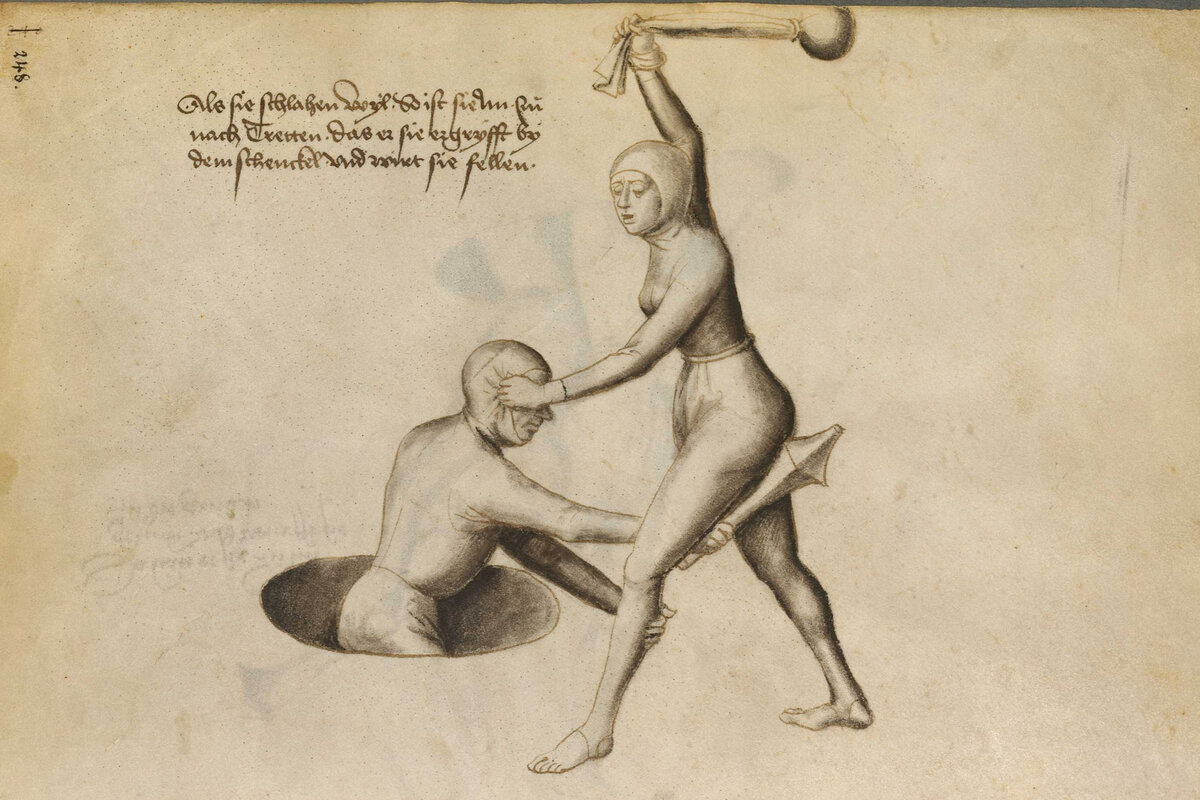 248.
Als sie schlahen wyl. So ist sie Im zů
nach Tretten. das er sie ergryfft by
dem schenckel vnd wirt sie fellen.